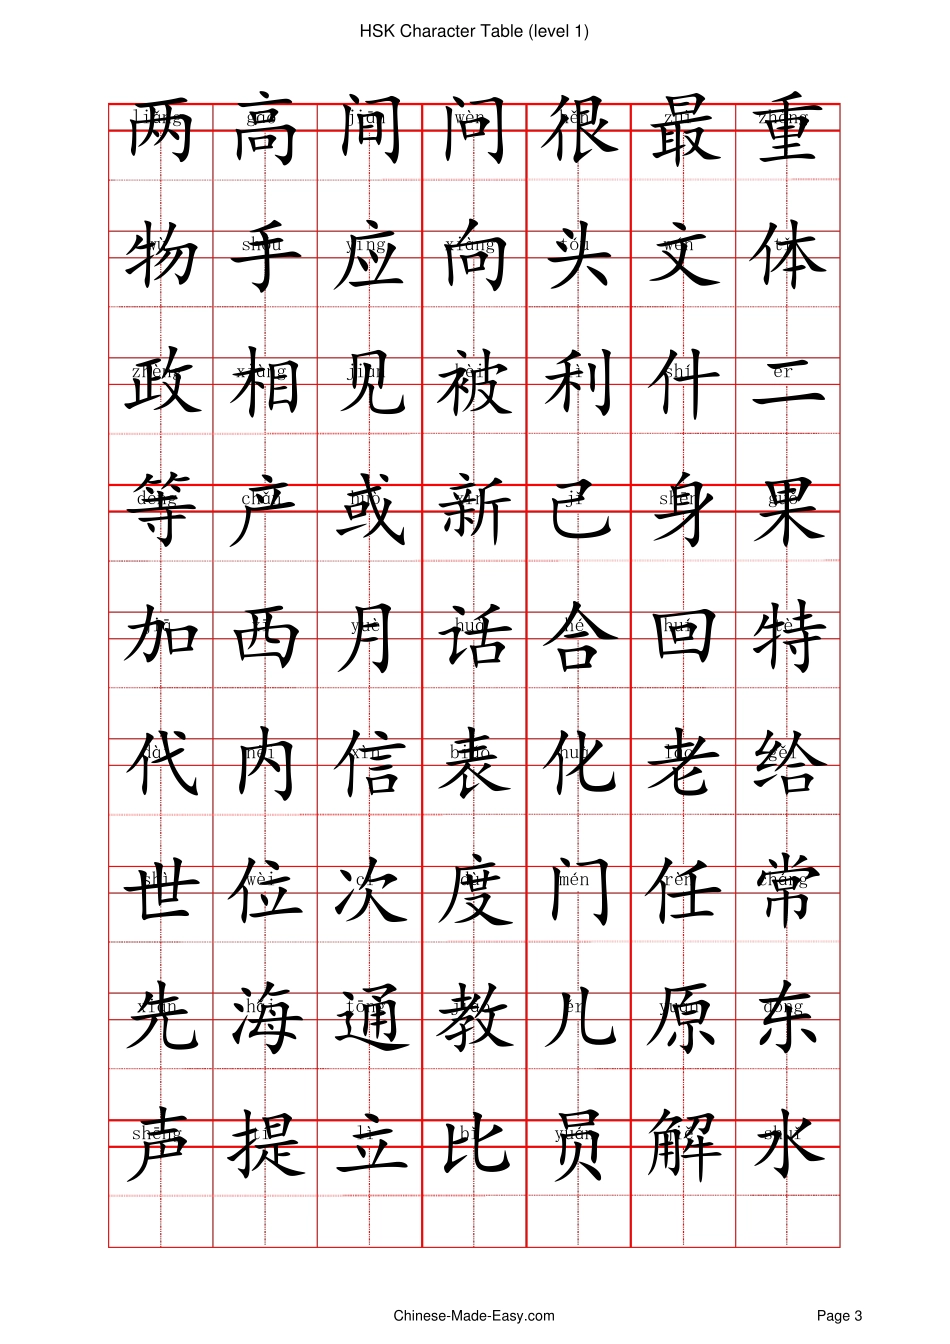 HSK Character Table (level 1)
liǎng gāo jiān wèn hěn zuì zhòng
两 高 间 问 很 最 重
wù shǒu yìng xiàng tóu wén tǐ
物 手 应 向 头 文 体
zhèng xiàng jiàn bèi lì shí èr
政 相 见 被 利 什 二
děng chǎn huò xīn jǐ shēn guǒ
等 产 或 新 己 身 果
jiā xī yuè huà hé huí tè
加 西 月 话 合 回 特
dài nèi xìn biǎo huà lǎo gěi
代 内 信 表 化 老 给
shì wèi cì dù mén rèn cháng
世 位 次 度 门 任 常
xiān hǎi tōng jiào ér yuán dōng
先 海 通 教 儿 原 东
shēng tí lì bǐ yuán shuǐ
声 提 立 比 员 解 水
Chinese-Made-Easy.com Page 3